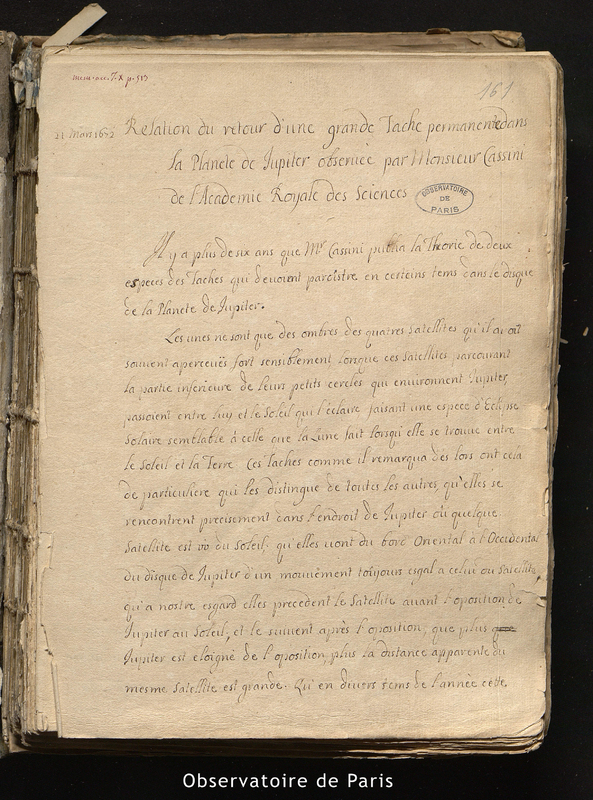 mem. acc. T. X p. 513
161
21 Mars 1672
Relation du retour d'une grande Tache permanente dans
la Planete de Jupiter observée par Monsieur Cassini
de l'Academie Royale des Sciences
OBSERVATOIRE
DE
PARIS
Il y a plus de six ans que Mr Cassini publia la Theorie de deux
especes des Taches qui devoient paroistre en certeins tems dans le disque
de la Planete de Jupiter.
Les unes ne sont que des ombres des quatres Satellites qu'il avoit
souvent aperceües fort sensiblement, lorsque ces Satellites parcourant
la partie inferieure de leurs petits cercles qui environnent Jupiter,
passoient entre luy et le Soleil qui l'éclaire faisant une espece d'Eclipse
Solaire semblable à celle que la Lune fait lorsqu'elle se trouve entre
le Soleil et la Terre Ces Taches comme il remarqua dés lors ont cela
de particuliere qui les distingue de toutes les autres, qu'elles se
rencontrent precisement dans l'endroit de Jupiter où quelque
Satellite est vu du Soleil; qu'elles vont du bord Oriental à l'Occidental
du disque de Jupiter d'un mouvement toûjours esgal a celui du Satellite
qu'a nostre esgard elles precedent le Satellite avant l'oposition de
Jupiter au Soleil, et le suivent après l'oposition; que plus que
Jupiter est eloigné de l'oposition, plus la distance apparente du
mesme Satellite est grande. Qu'en divers tems de l'année cette
Observatoire de Paris